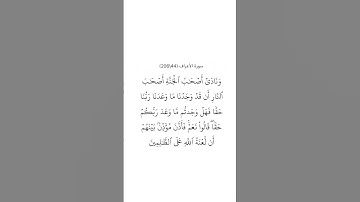 سورة الأعراف (44\206)
وَنَادَىٰٓ أَصْحَٰبُ ٱلْجَنَّةِ أَصْحَٰبَ
ٱلنَّارِ أَن قَدْ وَجَدْنَا مَا وَعَدَنَا رَبُّنَا
حَقًّا فَهَلْ وَجَدتُّم مَّا وَعَدَ رَبُّكُمْ
حَقًّا ۖ قَالُوا۟ نَعَمْ ۚ فَأَذَّنَ مُؤَذِّنٌۢ بَيْنَهُمْ
أَن لَّعْنَةُ ٱللَّهِ عَلَى ٱلظَّٰلِمِينَ